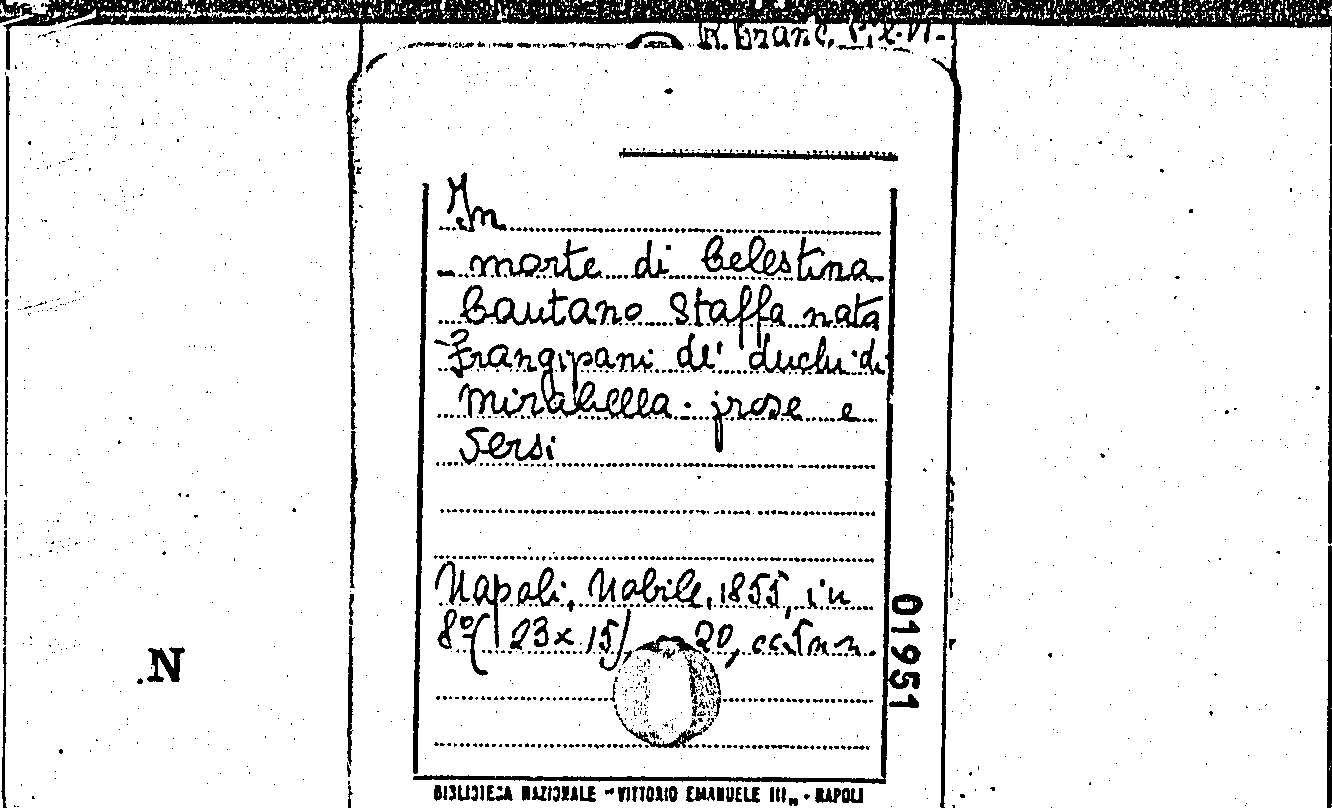 In
morte di Celestina
Cautano Staffa nata
Frangipani de' duchi di
Mirabella. prose e
versi
Napoli, Nobile, 1855, in
8º (23x15), 20,
01951
.N
BIBLIOTECA NAZIONALE "VITTORIO EMANUELE III„ - NAPOLI